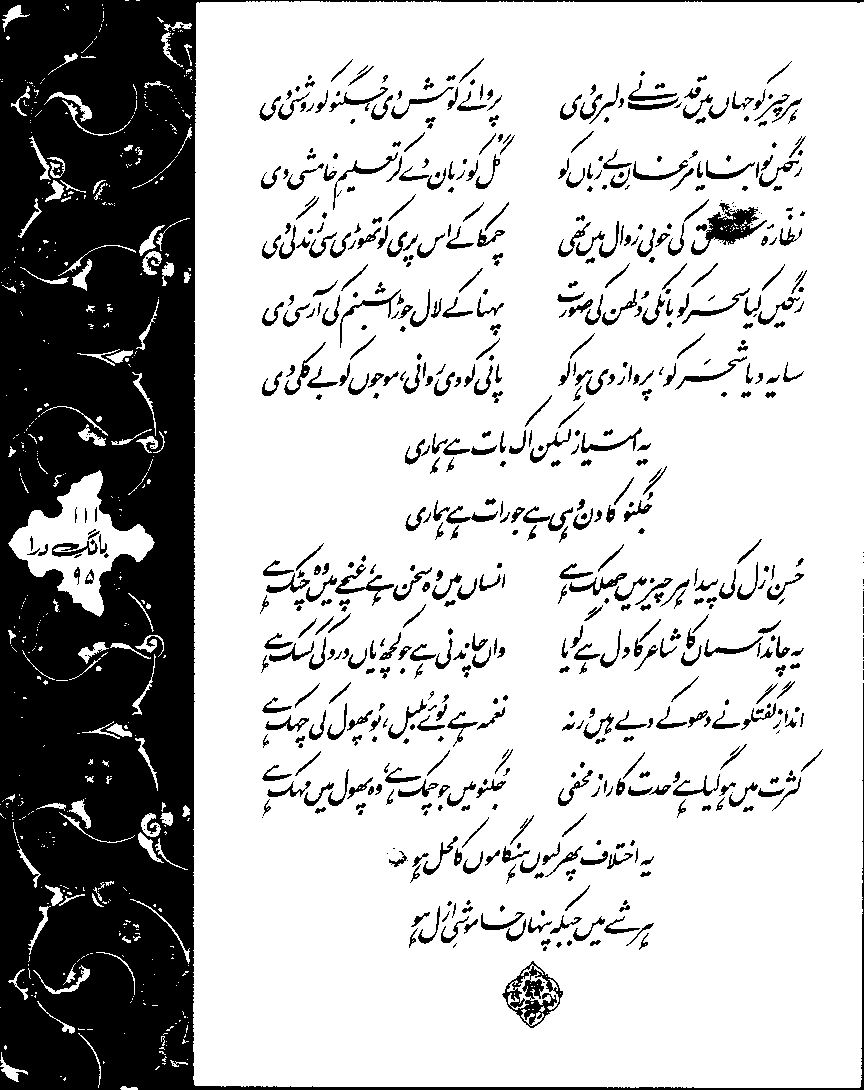 ہر چیز کو جہاں میں قدرت نے دلبری دی پروانے کو تپش دی، جگنو کو روشنی دی
رنگیں نوا بنایا مرغانِ بے زباں کو گل کو زبان دے کر تعلیمِ خامشی دی
نظّارۂ کی خوبی زوال میں تھی چمکا کے اس پری کو تھوڑی سی زندگی دی
رنگیں کیا سحر کو بانکی دلھن کی صورت پہنا کے لال جوڑا شبنم کی آرسی دی
سایہ دیا شجر کو، پرواز دی ہوا کو پانی کو دی روانی، موجوں کو بے کلی دی
یہ امتیاز لیکن اک بات ہے ہماری
جگنو کا دن وہی ہے جو رات ہے ہماری
حسنِ ازل کی پیدا ہر چیز میں جھلک ہے انساں میں وہ سخن ہے، غنچے میں وہ چٹک ہے
یہ چاند آسماں کا شاعر کا دل ہے گویا واں چاندنی ہے جو کچھ، یاں درد کی کسک ہے
اندازِ گفتگو نے دھوکے دیے ہیں ورنہ نغمہ ہے بُوئے بلبل، بُو پھول کی چہک ہے
کثرت میں ہو گیا ہے وحدت کا راز مخفی جگنو میں جو چمک ہے، وہ پھول میں مہک ہے
یہ اختلاف پھر کیوں ہنگاموں کا محل ہو
ہر شے میں جبکہ پنہاں خاموشیِ ازل ہو
۱۱۱
بانگِ درا
۹۵